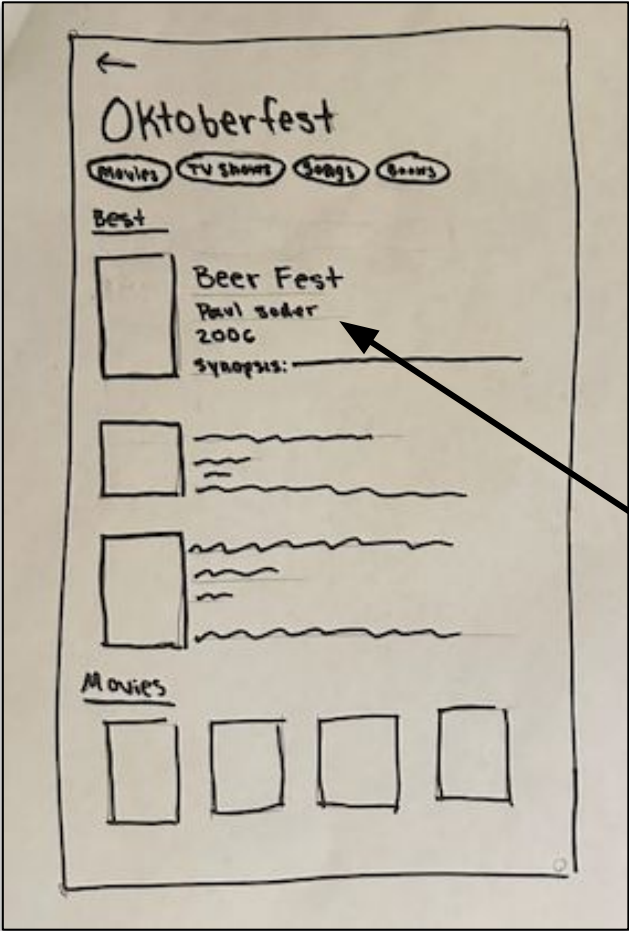 Oktoberfest
Movies TV Shows Songs Books
Best
Beer Fest
Paul Soder
2006
Synopsis:
Movies